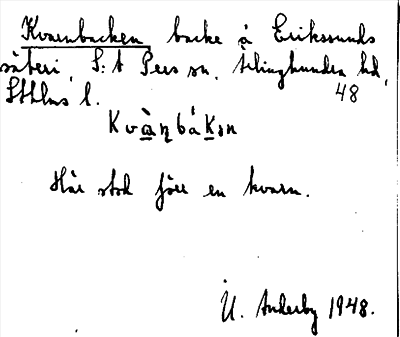 Kvarnbacken backe å Erikssunds
säteri, S:t Pers sn. Ärlinghundra hd,
Sthlms l. 48
Kvàṇbákən
Här stod förr en kvarn.
U. Anderby 1948.